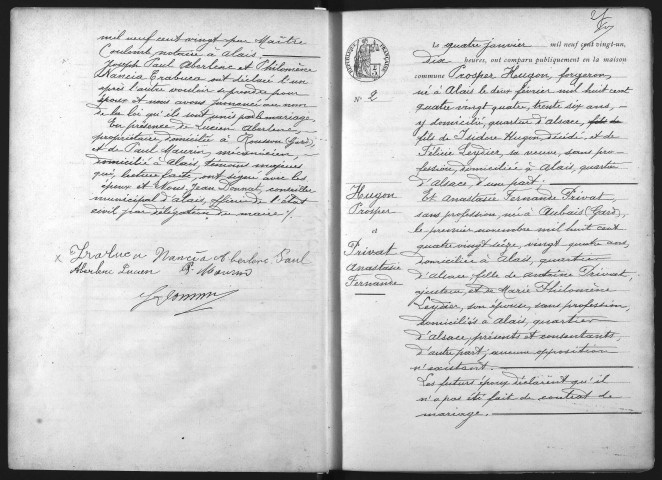 mil neuf cent vingt par Maître
Coulomb notaire à Alais.
Joseph Paul Aberlenc et Philomène
Nancia Crabuca ont déclaré l'un
après l'autre vouloir se prendre pour
époux et nous avons prononcé au nom
de la loi qu'ils sont unis par le mariage.
En présence de Lucien Aberlenc,
propriétaire domicilié à Rousson (Gard),
et de Paul Maurin, mécanicien,
domicilié à Alais, témoins majeurs
qui, lecture faite, ont signé avec les
époux et Nous Jean Donnat, conseiller
municipal d'Alais, officier de l'état
civil par délégation du maire ./.
Nancia Aberlenc Paul
Aberlenc Lucien P. Maurin
Le quatre janvier mil neuf cent vingt-un,
dix heures, ont comparu publiquement en la maison
commune Prosper Hugon, forgeron,
N° 2
né à Alais le deux février mil huit cent
quatre vingt quatre, trente six ans,
y domicilié, quartier d'alsace,
fils de Isidore Hugon, décédé, et de
Félicie Leydier, sa veuve, sans pro-
fession, domiciliée à Alais, quartier
d'Alsace, d'une part.
Hugon
Prosper
et
Privat
Anastasie
Fernande
Et Anastasie Fernande Privat,
sans profession, née à Aubais (Gard),
le premier novembre mil huit cent
quatre vingt seize, vingt quatre ans,
domiciliée à Alais, quartier
d'Alsace, fille de Antoine Privat,
ajusteur, et de Marie Philomène
Leydier, son épouse, sans profession,
domiciliés à Alais, quartier
d'alsace, présents et consentants,
d'autre part; aucune opposition
n'existant.
Les futurs époux déclarent qu'il
n'a pas été fait de contrat de
mariage.